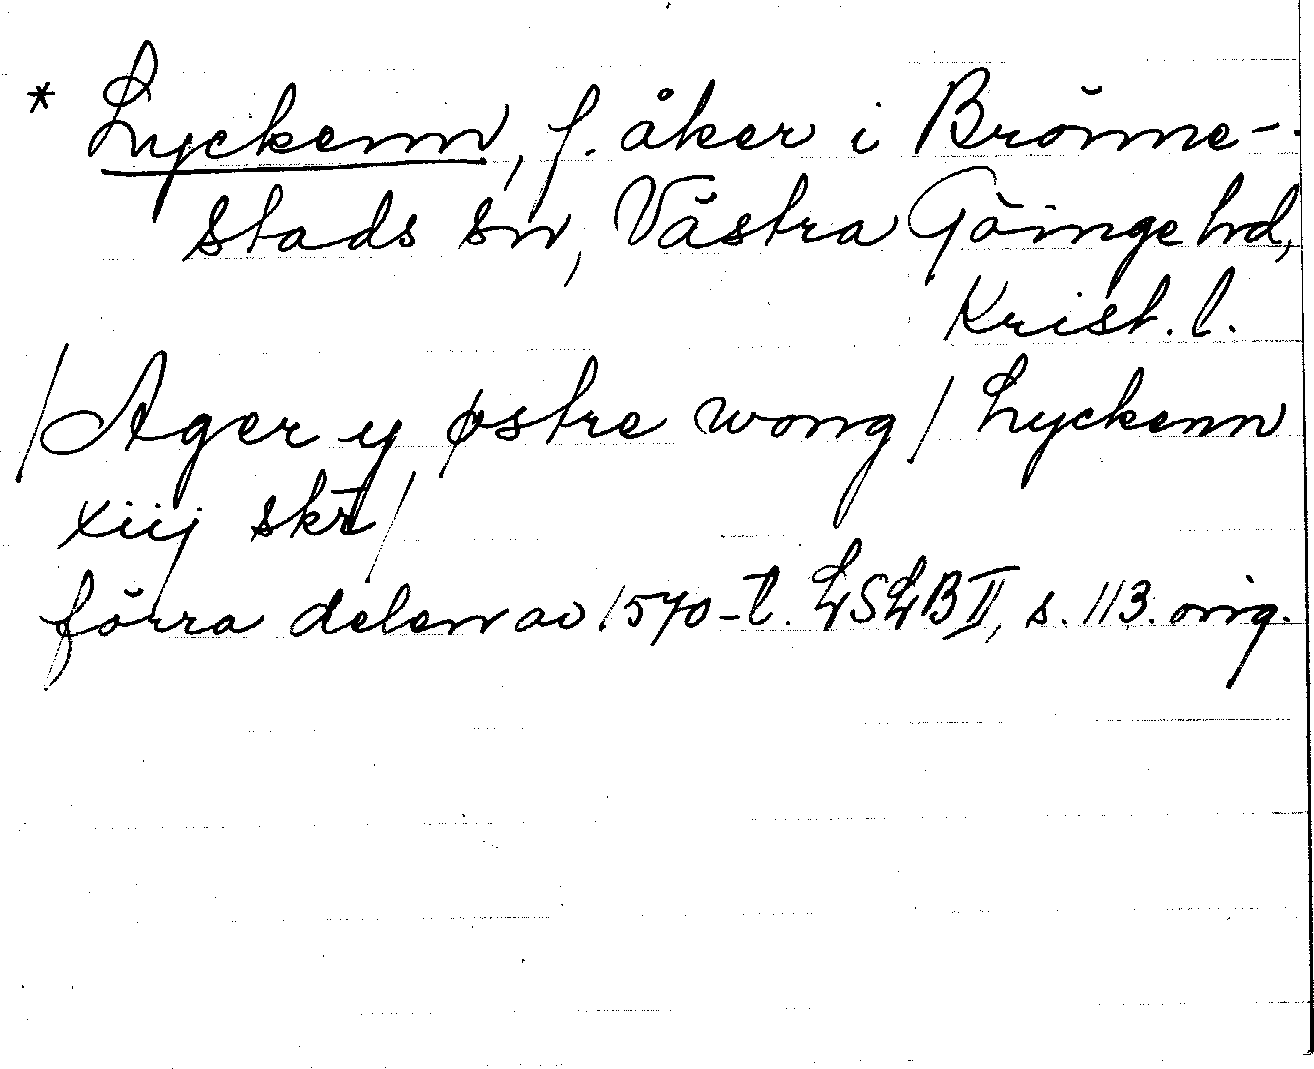 * Lyckenn, f. åker i Brönne-
stads sn, Västra Göinge hd,
Krist. l.
/Ager y østre wong/ Lyckenn
xiij skr/
förra delen av 1570-t. LSLB II, s. 113. orig.